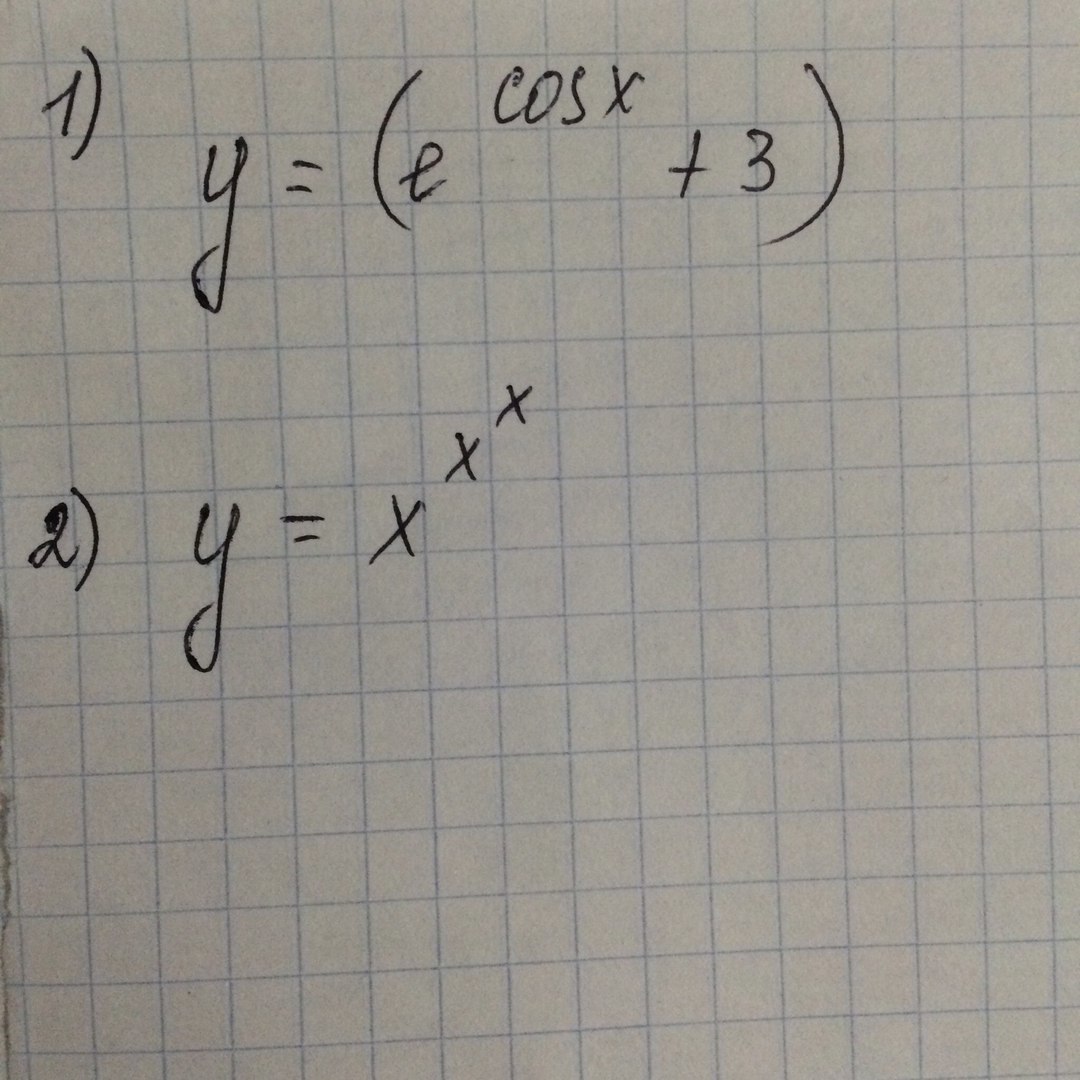 1) y = (e^{cos x} + 3)
2) y = x^{x^{x}}